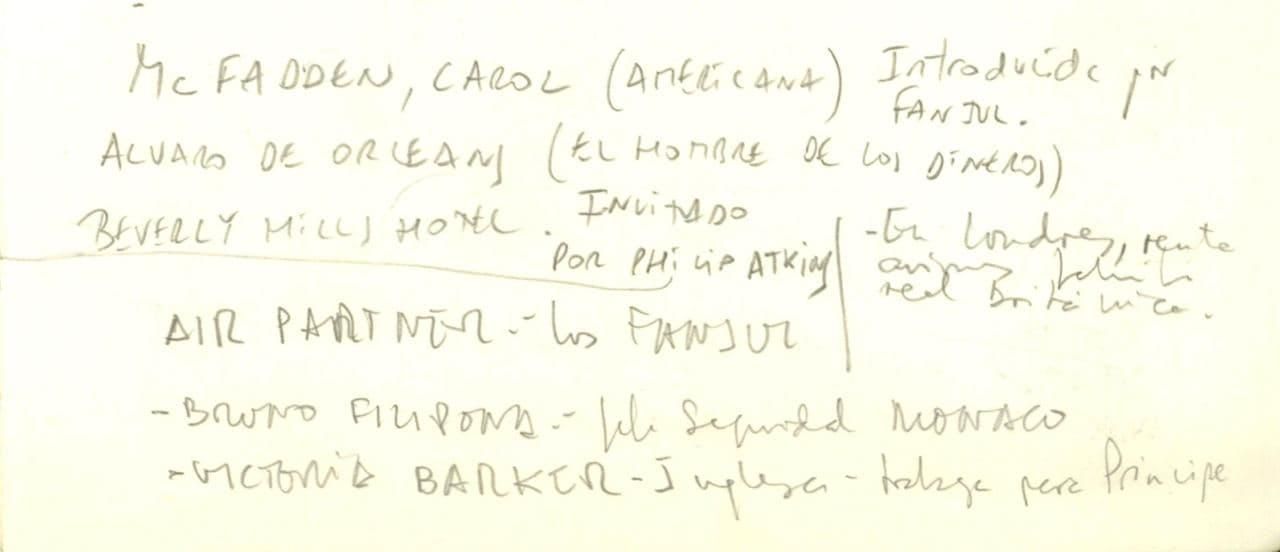 Mc FADDEN, CAROL (AMERICANA) Introducida por
FANJUL.
ALVARO DE ORLEANS (EL HOMBRE DE LOS DINEROS)
BEVERLY HILLS HOTEL. INVITADO
POR PHILIP ATKINS
-En Londres, renta
aviones familia
real Británica.
AIR PARTNER.- los FANJUL
-BRUNO FILIPONA.- Jefe Seguridad MONACO
-VICTORIA BARKER-Inglesa-trabaja para Principe